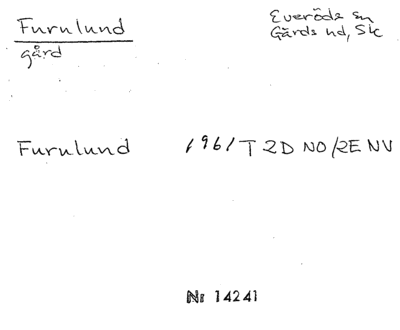 Furulund
gård
Everöds sn
Gärds hd, Sk
Furulund 1961 T 2D NO/2E NV
Nr 14241